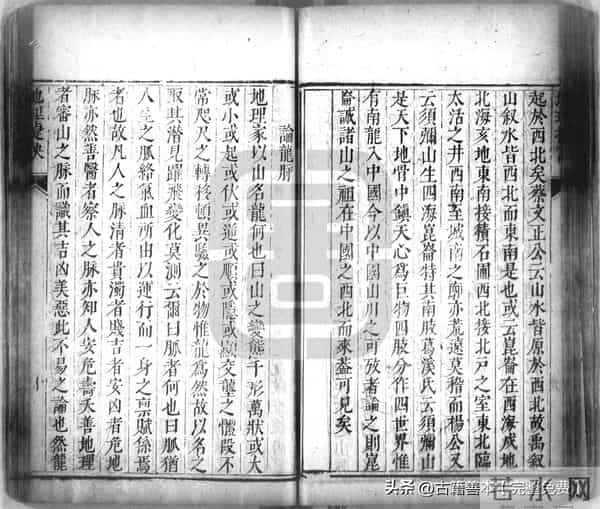 起於西北矣蔡文正公云山水皆原於西北故禹叙
山叙水皆西北而東南是也或云崑崙在西海戌地
北海亥地東南接積石圃西北接北戶之室東北臨
太活之井西南至城南之
亦荒遠莫稽而楊公又
云須彌山生四海崑崙特其南肢葛溪氏云須彌山
是天下地骨中鎮天心爲巨物四肢分作四世界惟
有南龍入中國今以中國山川之可攷者論之則崑
崙誠諸山之祖在中國之西北而來葢可見矣
論龍脉
地理家以山名龍何也曰山之變態千形萬狀或大
或小或起或伏或逆或順或隱或顯支壟之體段不
常咫尺之轉移頓異驗之於物惟龍爲然故以名之
取其潛見躍飛變化莫測云爾曰脈者何也曰脈猶
人身之脈絡氣血所由以運行而一身之稟賦係焉
者也故凡人之脉清者貴濁者賤吉者安凶者危地
脉亦然善醫者察人之脉亦知人安危壽夭善地理
者審山之脉而識其吉凶美惡此不易之論也然龍
頭条@古籍善本十完整免費